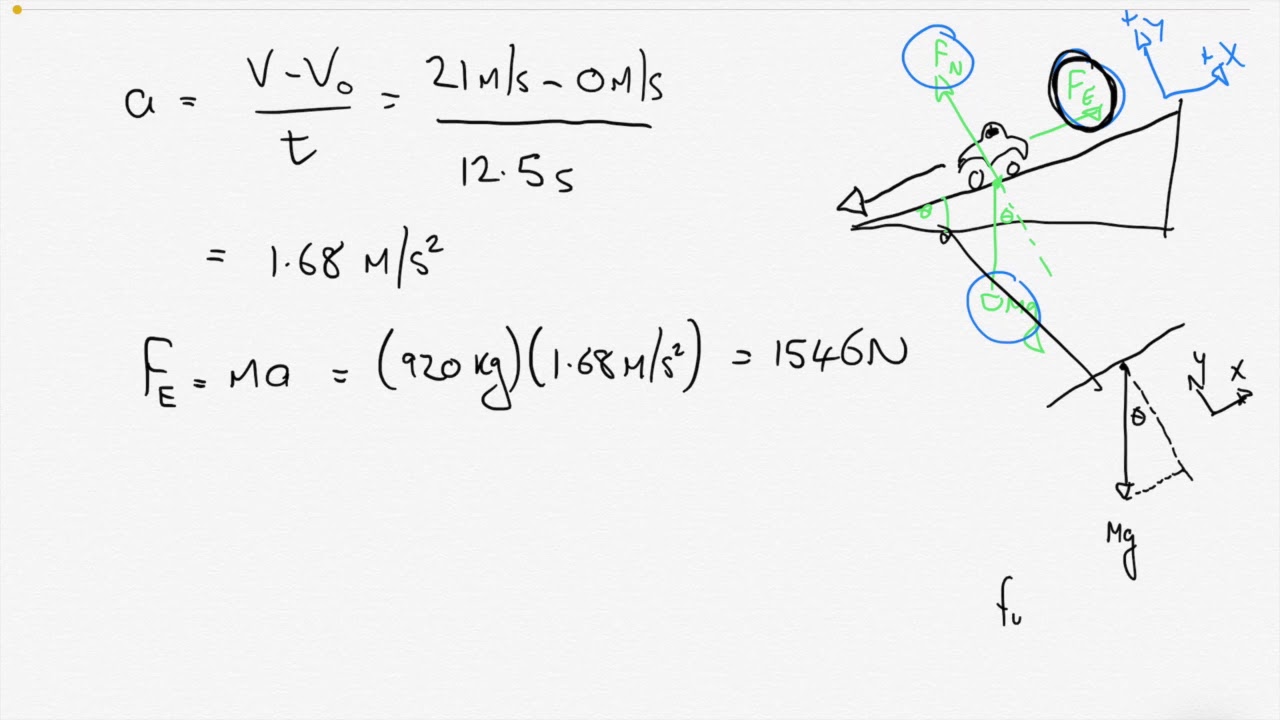 a = V - V₀ / t = 21 M/s - 0 M/s / 12.5 s
= 1.68 M/s²
F_E = Ma = (920 kg)(1.68 M/s²) = 1546N
F_N
F_E
+Y
+X
θ
θ
Mg
Y
X
θ
Mg